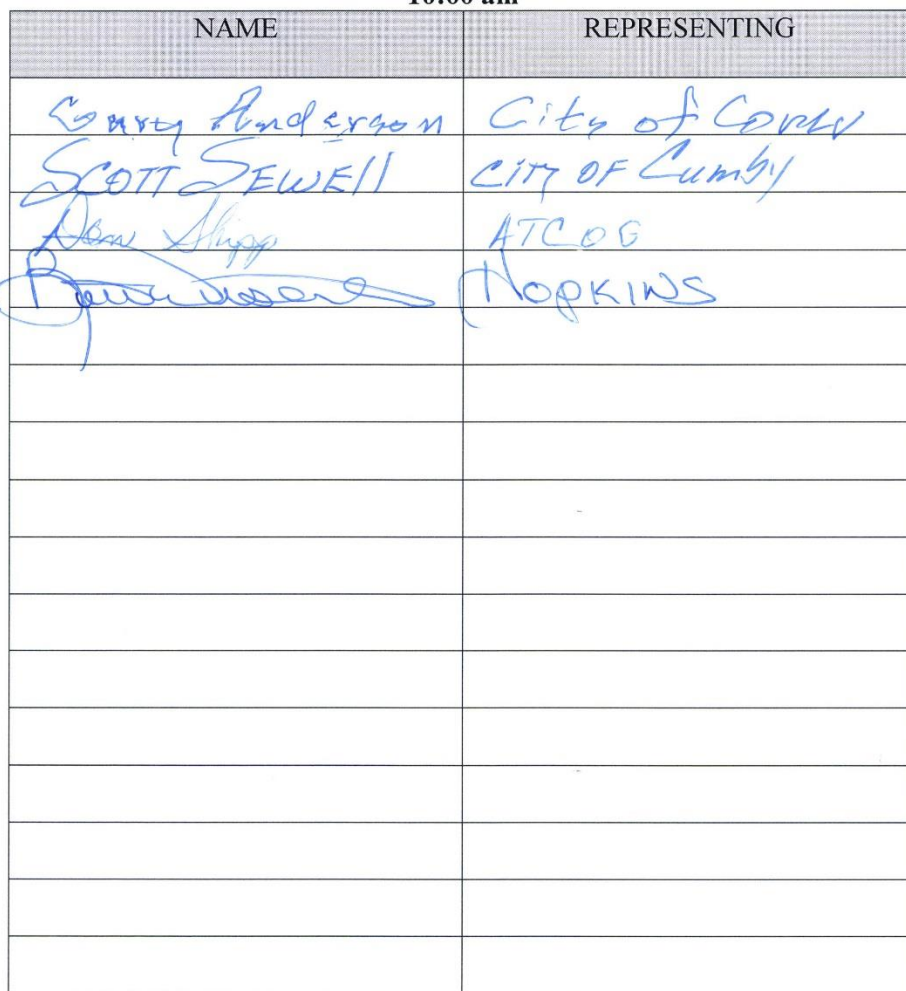 10:00 am
NAME REPRESENTING
Anderson City of
SCOTT SEWEll CITY OF Cumby
Don Shipp ATCOG
HOPKINS